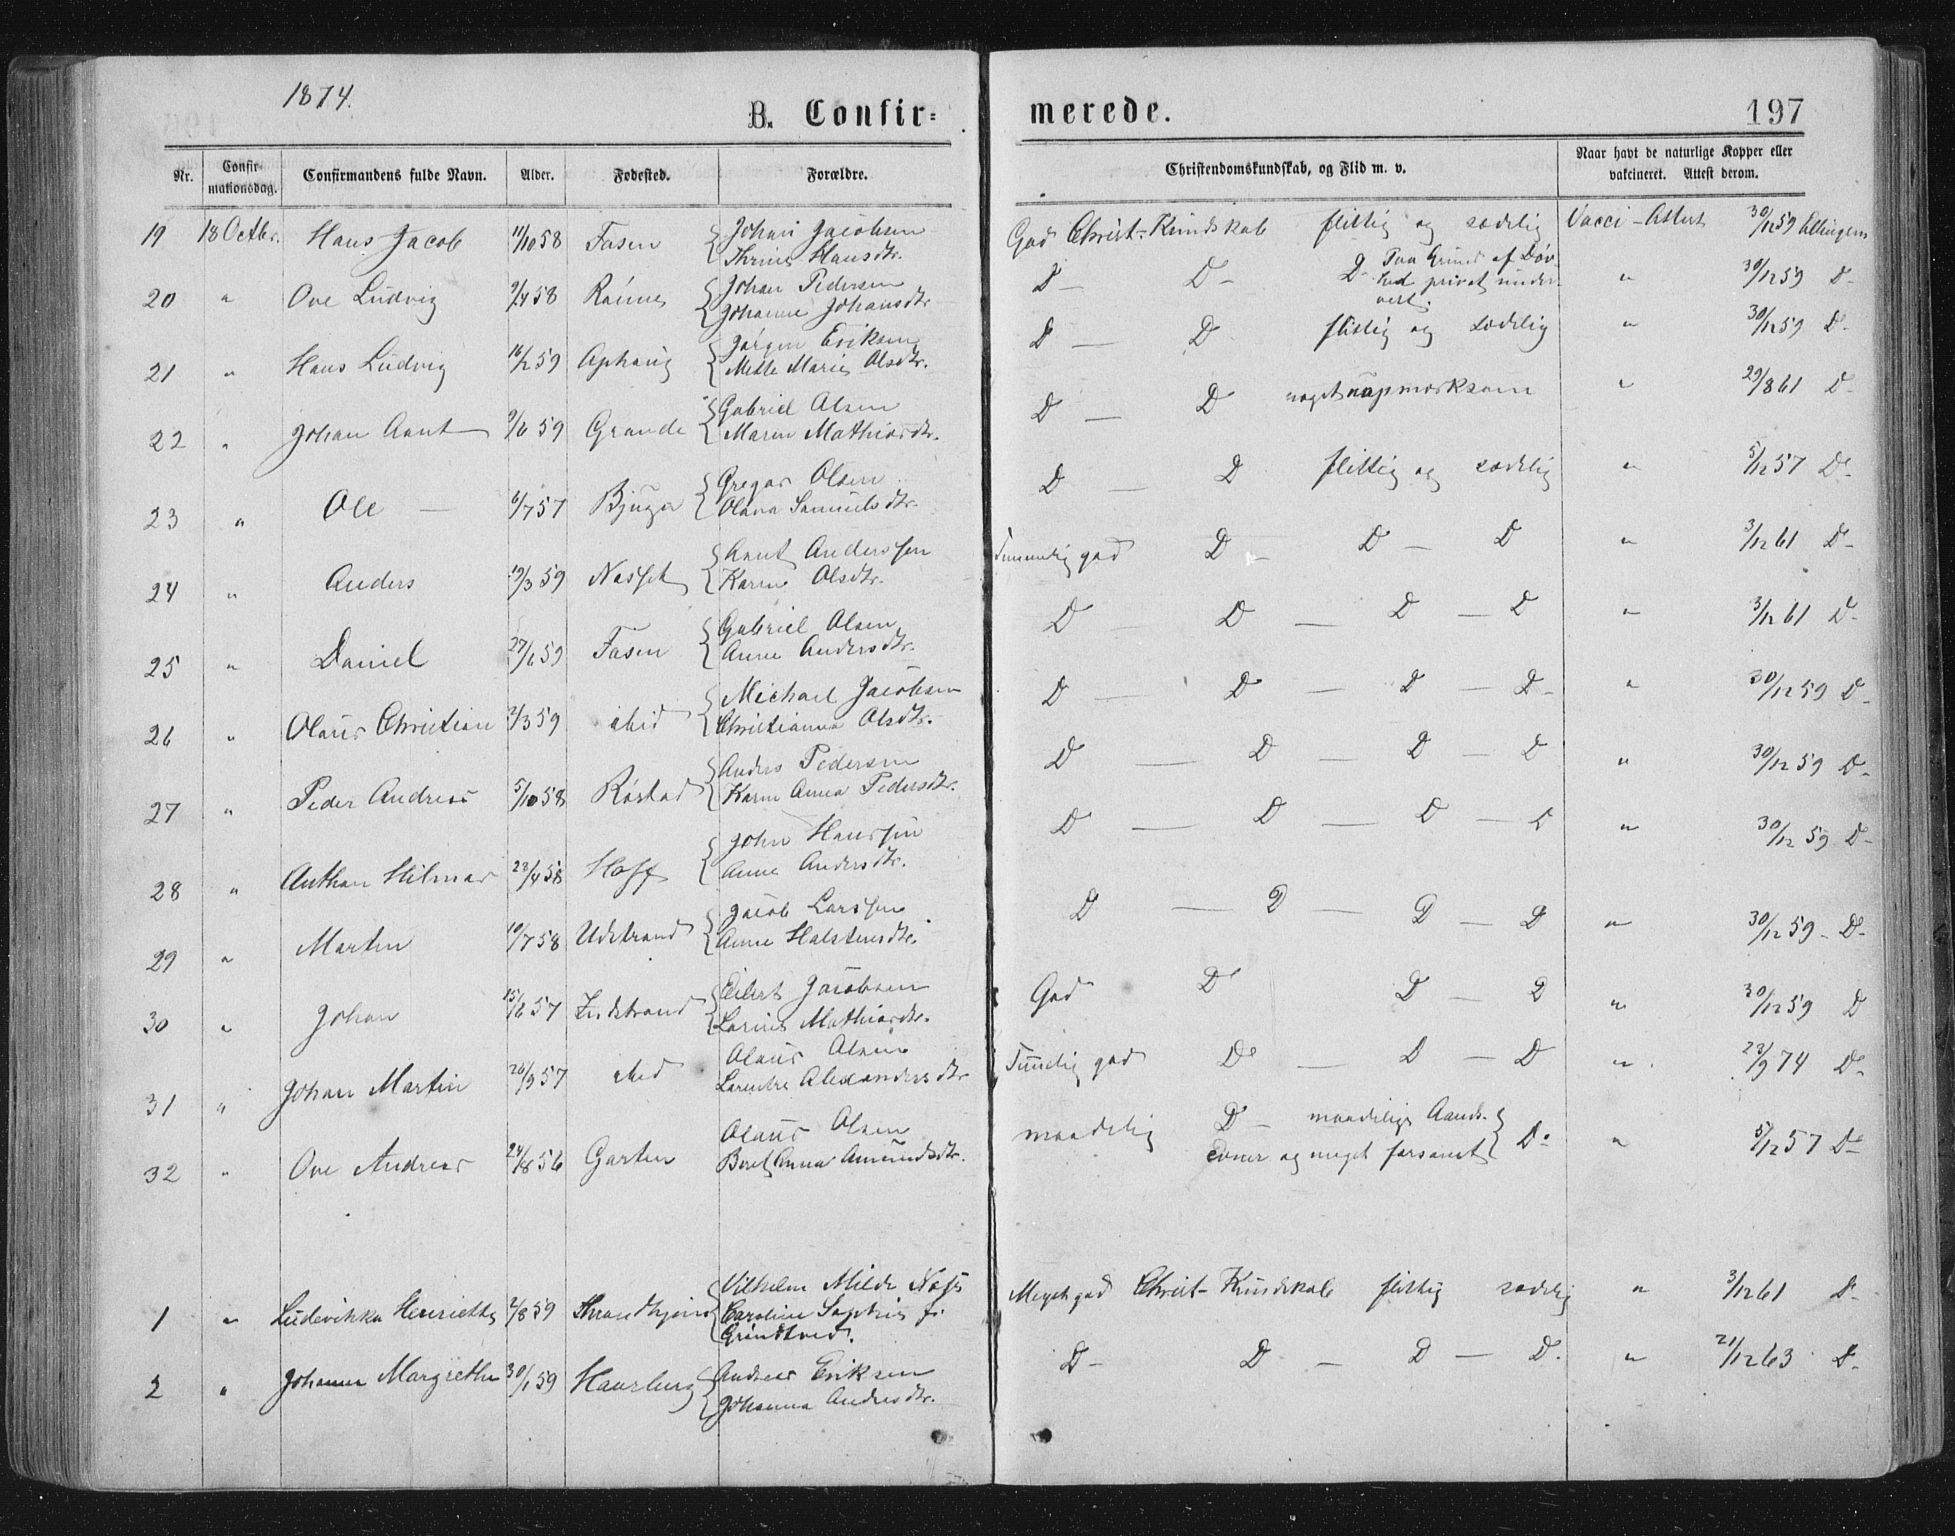 1874.
B. Confir=
merede.
197
Nr.
Confir-
mationsdag.
Confirmandens fulde Navn.
Alder.
Fødested.
Forældre.
Christendomskundskab, og Flid m. v.
Naar havt de naturlige Kopper eller
vakcineret. Attest derom.
19 18 Octbr. Hans Jacob 11/10 58 Fasen Johan Jacobsen God Christ- Kundskab flittig og sædelig Vacci-Attest 30/12 59 Ellingsen
Hansdtr.
20 " Ove Ludvig 9/4 58 Johan Pedersen D- D- D- Paa Grund af Døv- " 30/12 59 D-
Johanne Johansdtr. hed privat under-
vist.
21 " Hans Ludvig 16/2 59 Ophaug Jørgen Eriksen D- D- flittig og sædelig " 30/12 59 D-
Mette Marie Olsdtr.
22 " Johan Aant 9/6 59 Grande Gabriel Olsen D - D noget uopmærksom " 29/8 61 D-
Maren Mathiasdtr.
23 " Ole - 6/7 57 Bjugn Gregar Olsen D - D flittig og sædelig " 5/12 57 D-
Olava Samuelsdtr.
24 " Anders 19/3 59 Aant Anderssen Temmelig god D - D - D " 3/12 61 D-
Karen Olsdtr.
25 " Daniel 27/6 59 Fasen Gabriel Olsen D - D - D - D " 3/12 61 D-
Anne Andersdtr.
26 " Olaus Christian 2/3 59 ibid Michael Jacobsen D - D - D - D- " 30/12 59 D-
Christianna Olsdtr.
27 " Peder Andreas 5/10 58 Røstad Anders Pedersen D - D - D - D " 30/12 59 D-
Karen Anna Pedersdtr.
28 " Anthon Hilmar 23/4 58 Hoff John Hanssen D - D - D - D " 30/12 59 D-
Anne Andersdtr.
29 " Martin 10/7 58 Udstrand Jacob Larssen D - D - D - D " 30/12 59 - D-
Anne Halstensdtr.
30 " Johan 15/6 57 Indstrand Eilert Jacobsen God D D - D " 30/12 59 D
Mathiasdtr.
31 " Johan Martin 20/9 57 ibid Olaus Olsen god D - D - D " 23/9 74 D-
Alexandersdtr
32 " Ove Andreas 24/8 56 Garten Olaus Olsen maadelig D - maadelige Aands- D- " 5/12 57 D-
Beret Anna Amundsdtr. evner og meget forsømt
1 " Ludovikka Henriette 2/8 59 Throndhjem Vilhelm Milde Meget god Christ- Kundskab flittig sædelig " 3/12 61 D-
Caroline Sophie f.
Grindtved.
2 " Johanne Margrethe 30/1 59 Andreas Eriksen D- D - D - D. " 21/12 63 D-
Johanna Andersdtr.